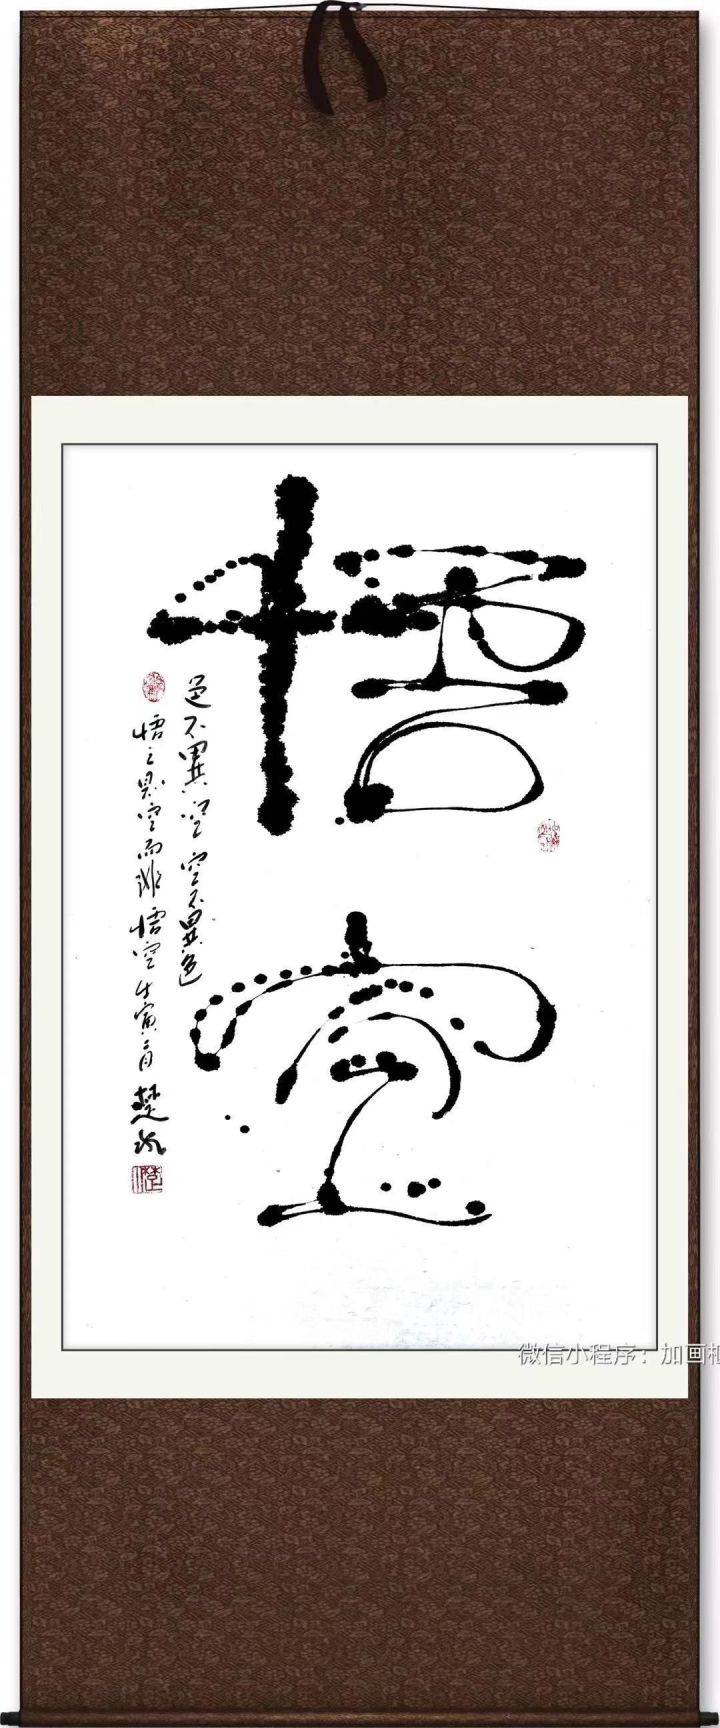 悟空
色不異空空不異色
悟之是空而非悟空壬寅二月楚
微信小程序：加画框